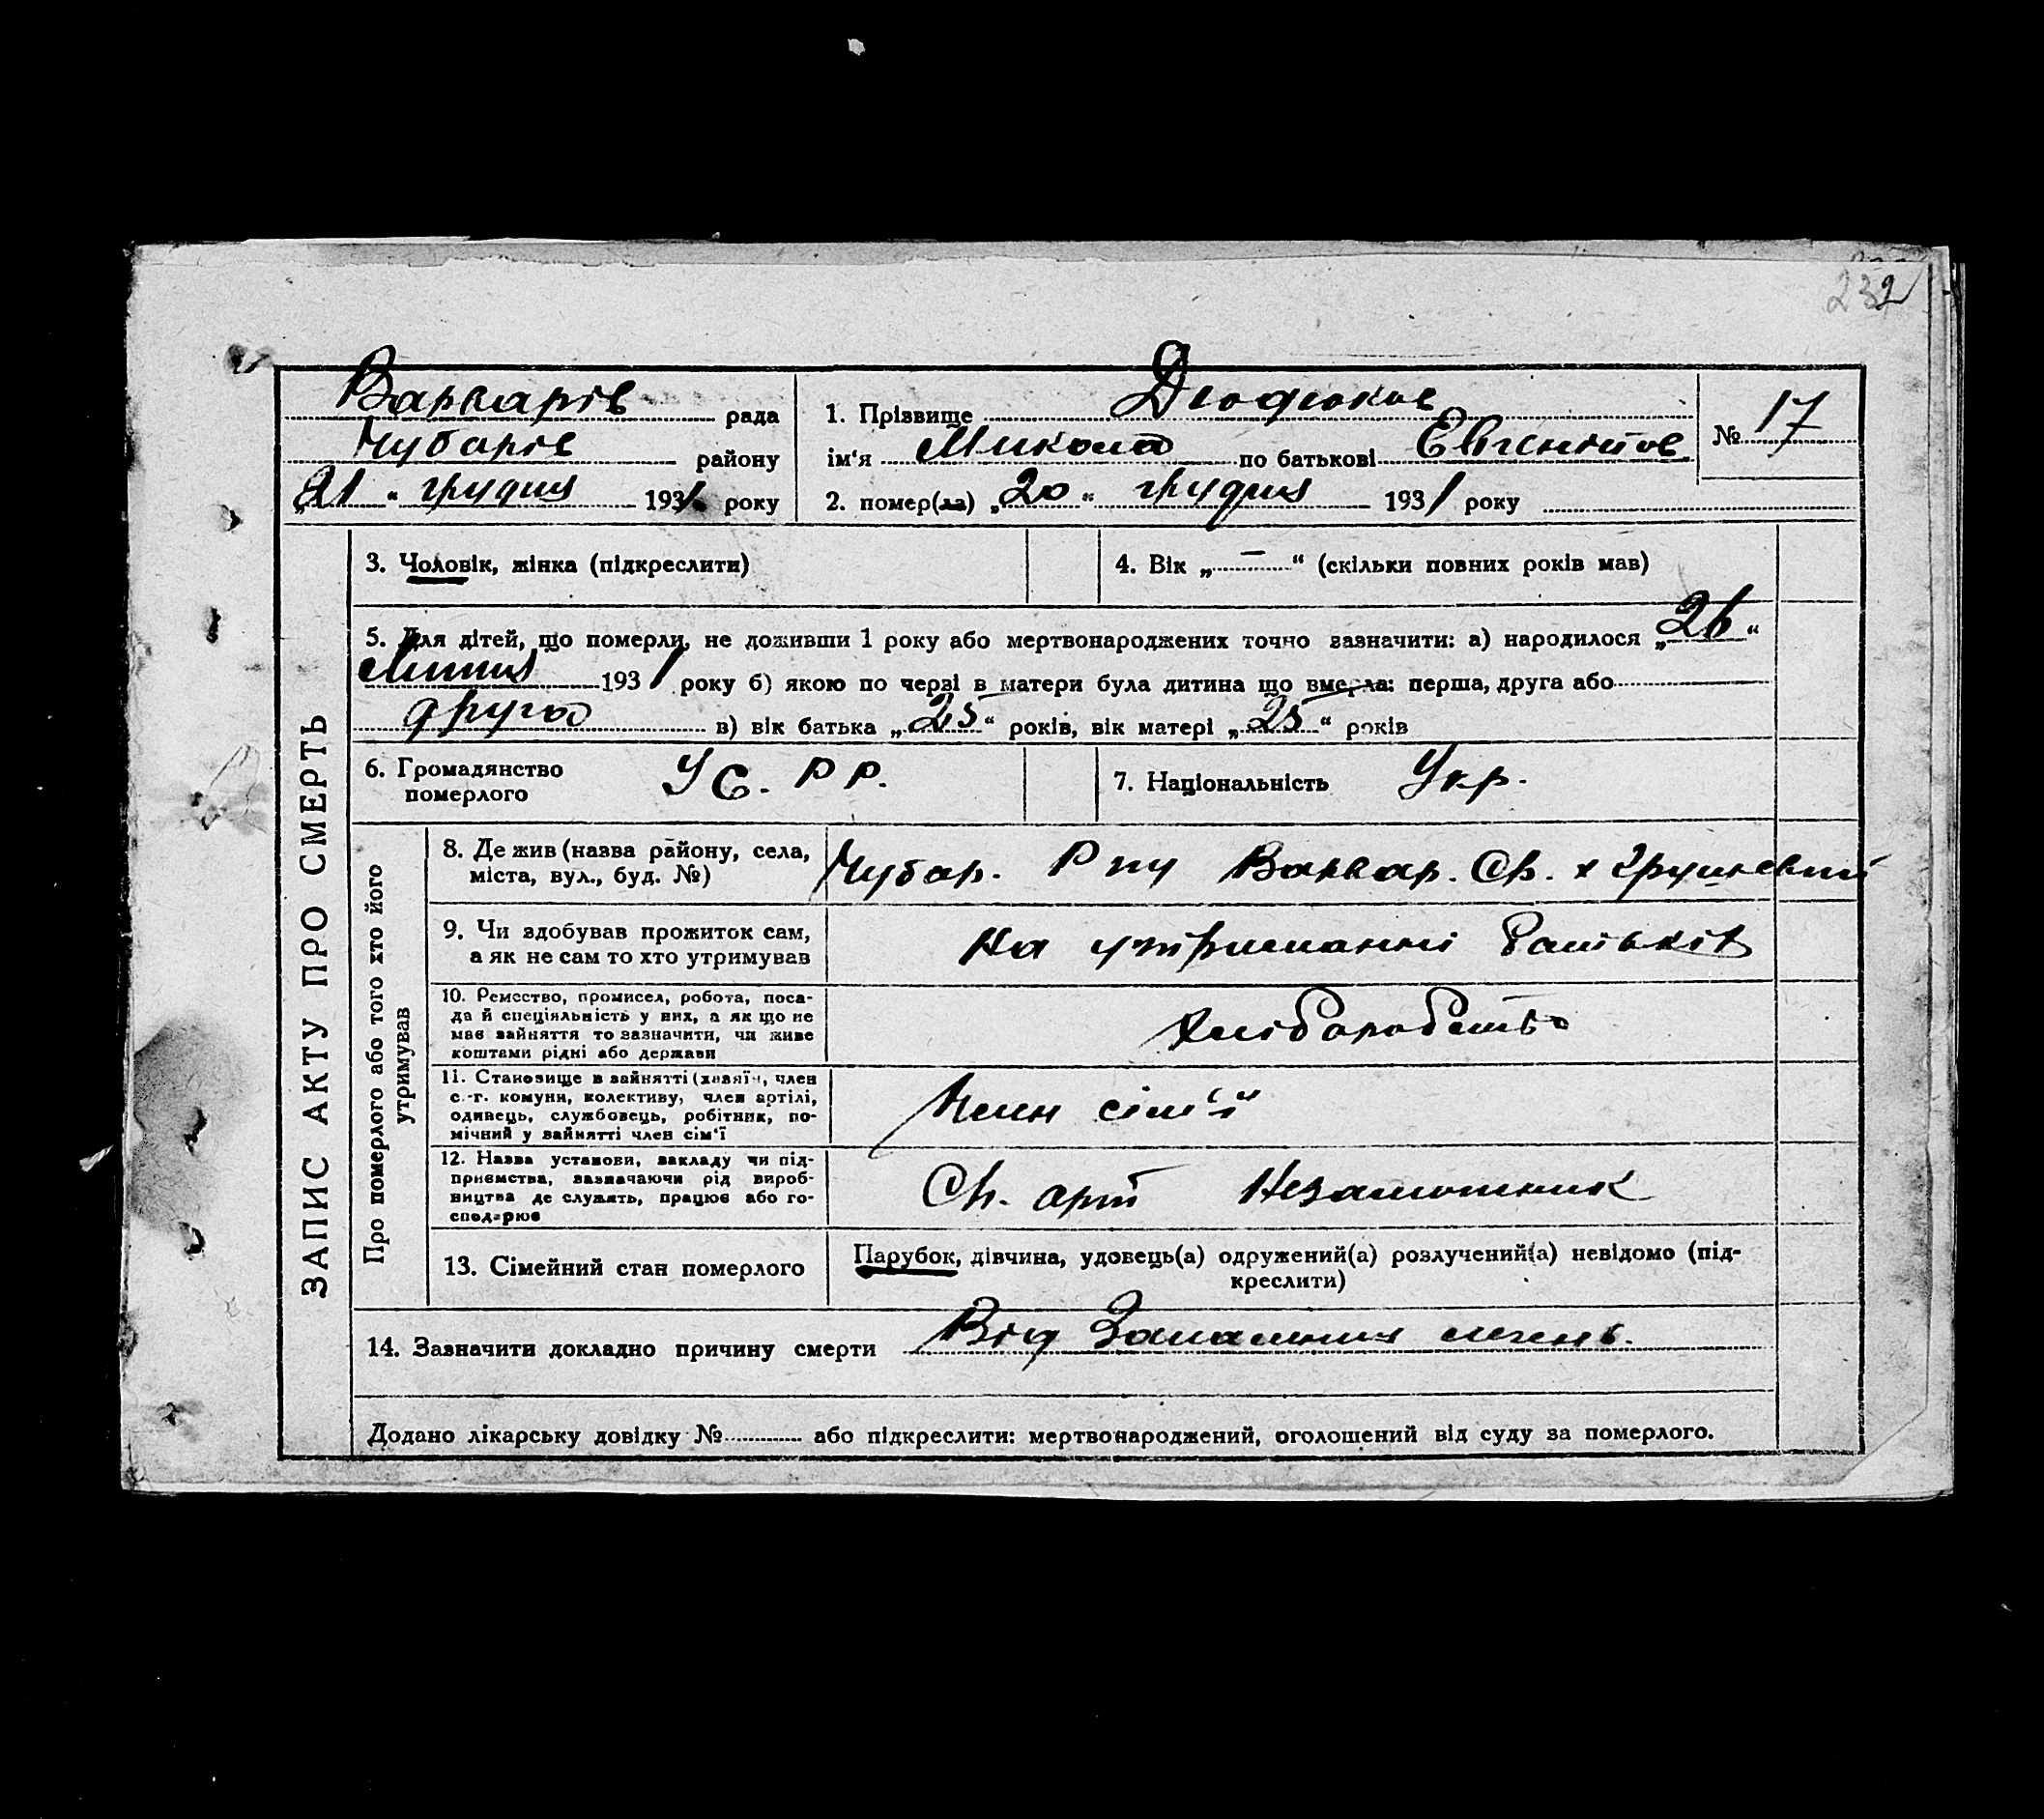 232
Варварів рада
Чубарів району
„21“ грудня 1931 року
1. Прізвище Дюдюков
ім‘я Микола по батькові Евгенійов
2. помер(ла) „20“ грудня 1931 року
№ 17
ЗАПИС АКТУ ПРО СМЕРТЬ
3. Чоловік, жінка (підкреслити)
4. Вік „—“ (скільки повних років мав)
5. Для дітей, що померли, не доживши 1 року або мертвонароджених точно зазначити: а) народилося „26“
Липня 1931 року б) якою по черзі в матери була дитина що вмерла: перша, друга або
друга в) вік батька „25“ років, вік матері „25“ років
6. Громадянство
померлого
УС. РР.
7. Національність Укр.
Про померлого або того хто його
утримував
8. Де жив (назва району, села,
міста, вул., буд. №)
Чубар. Р ну Варвар. Ср. х Грушевий
9. Чи здобував прожиток сам,
а як не сам то хто утримував
на утриманні батьків
10. Ремество, промисел, робота, поса-
да й спеціяльність у них, а як що не
має зайняття то зазначити, чи живе
коштами рідні або держави
Хліборобство
11. Становище в зайнятті (хазяїн, член
с.-г. комуни, колективу, член артілі,
одинець, службовець, робітник, по-
мічний у зайнятті член сім‘ї
Член сім‘ї
12. Назва установи, закладу чи під-
приємства, зазначаючи рід вироб-
ництва де служать, працює або го-
сподарює
Сг. арт Незаможник
13. Сімейний стан померлого
Парубок, дівчина, удовець(а) одружений(а) розлучений(а) невідомо (під-
креслити)
14. Зазначити докладно причину смерти Від Запалення легень.
Додано лікарську довідку № або підкреслити: мертвонароджений, оголошений від суду за померлого.